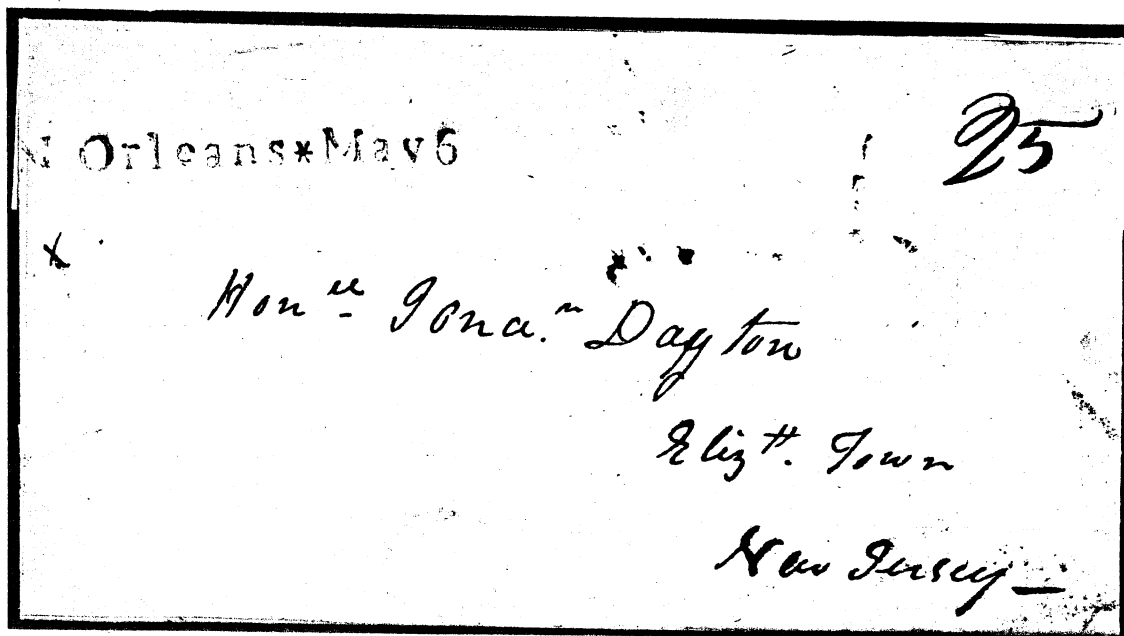 N Orleans*May6
25
x
Honˡᵉ Jonaⁿ. Dayton
Elizᵗʰ. Town
New Jersey